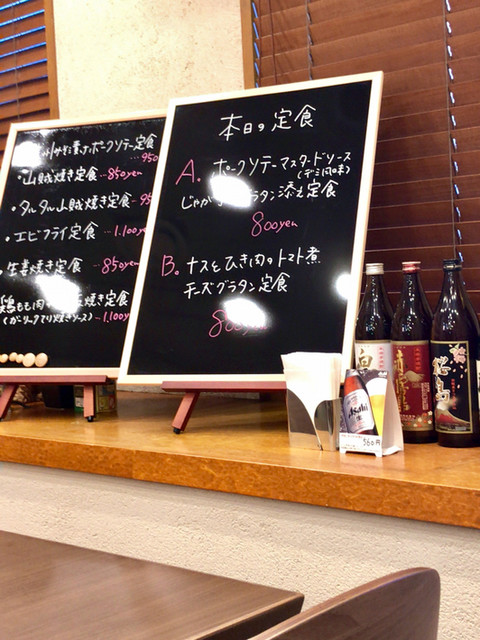 みそ漬けポークソテー定食
…950
・山賊焼き定食…850yen
・タルタル山賊焼き定食…95
・エビフライ定食…1,100yen
生姜焼き定食…850yen
鶏もも肉 焼き定食
(ガーリックマリ焼きソース)…1,100y
本日の定食
A. ポークソテーマスタードソース
(デミ風味)
じゃが グラタン添え定食
800yen
B. ナスとひき肉のトマト煮
チーズグラタン定食
800yen
白
桜島
Asahi
生
560円